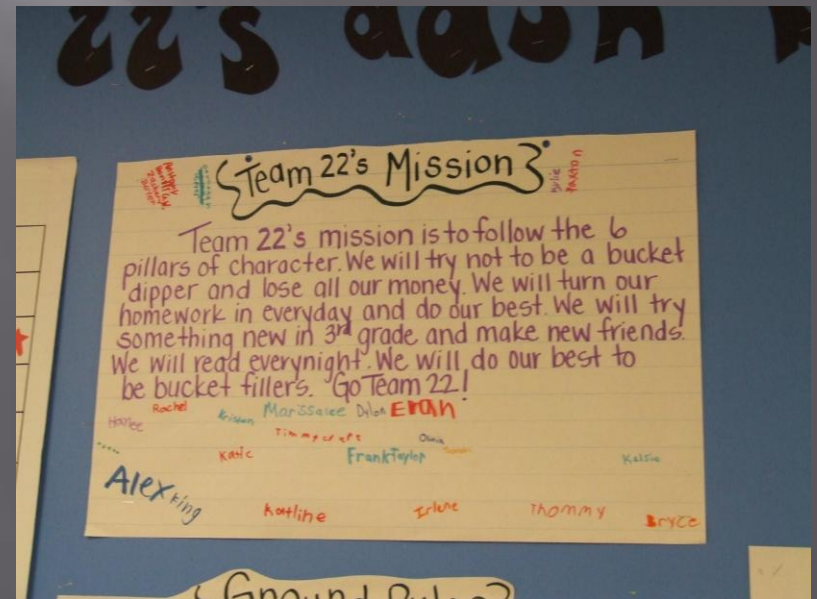 22's dash
Team 22's Mission
Paxton
Team 22's mission is to follow the 6
pillars of character. We will try not to be a bucket
dipper and lose all our money. We will turn our
homework in everyday and do our best. We will try
something new in 3rd grade and make new friends.
We will read everynight. We will do our best to
be bucket fillers. Go Team 22!
Rachel Kristen Marissalee Dylan Erah
Katie FrankTaylor Kelsie
Alex King
Katline Irlene Thommy Bryce
Ground Rules